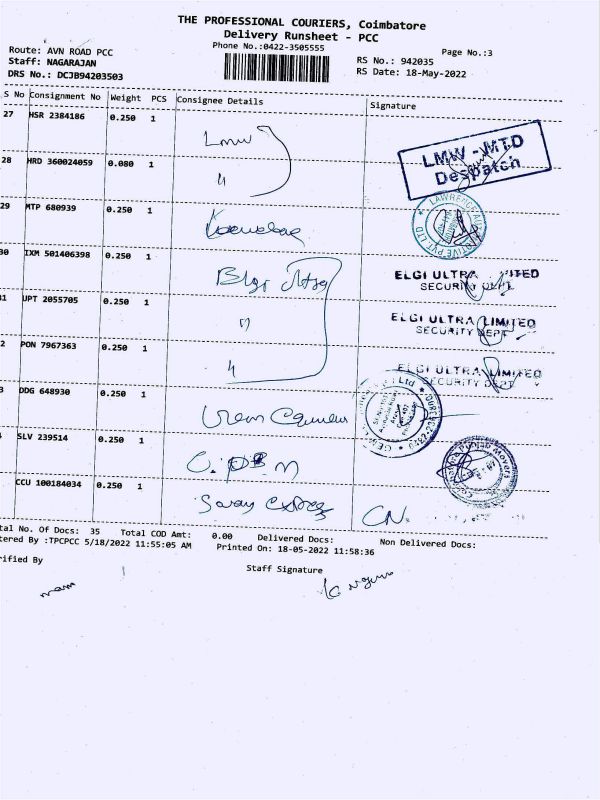 THE PROFESSIONAL COURIERS, Coimbatore
Delivery Runsheet - PCC
Phone No.:0422-3505555
Page No.:3
Route: AVN ROAD PCC
Staff: NAGARAJAN
DRS No.: DCJB94203503
RS No.: 942035
RS Date: 18-May-2022
S No Consignment No Weight PCS Consignee Details Signature
27 HSR 2384186 0.250 1 Lmw
LMW - MTD
Despatch
28 HRD 360024059 0.080 1 "
29 MTP 680939 0.250 1
30 IXM 501406398 0.250 1 Elgi
ELGI ULTRA
SECURITY DEPT
1 UPT 2055705 0.250 1 "
ELGI ULTRA LIMITED
SECURITY DEPT
2 PON 7967363 0.250 1 "
ELGI ULTRA LIMITED
SECURITY DEPT
3 DDG 648930 0.250 1
SLV 239514 0.250 1
CCU 100184034 0.250 1 CN.
tal No. Of Docs: 35 Total COD Amt: 0.00 Delivered Docs: Non Delivered Docs:
tered By :TPCPCC 5/18/2022 11:55:05 AM Printed On: 18-05-2022 11:58:36
rified By
Staff Signature